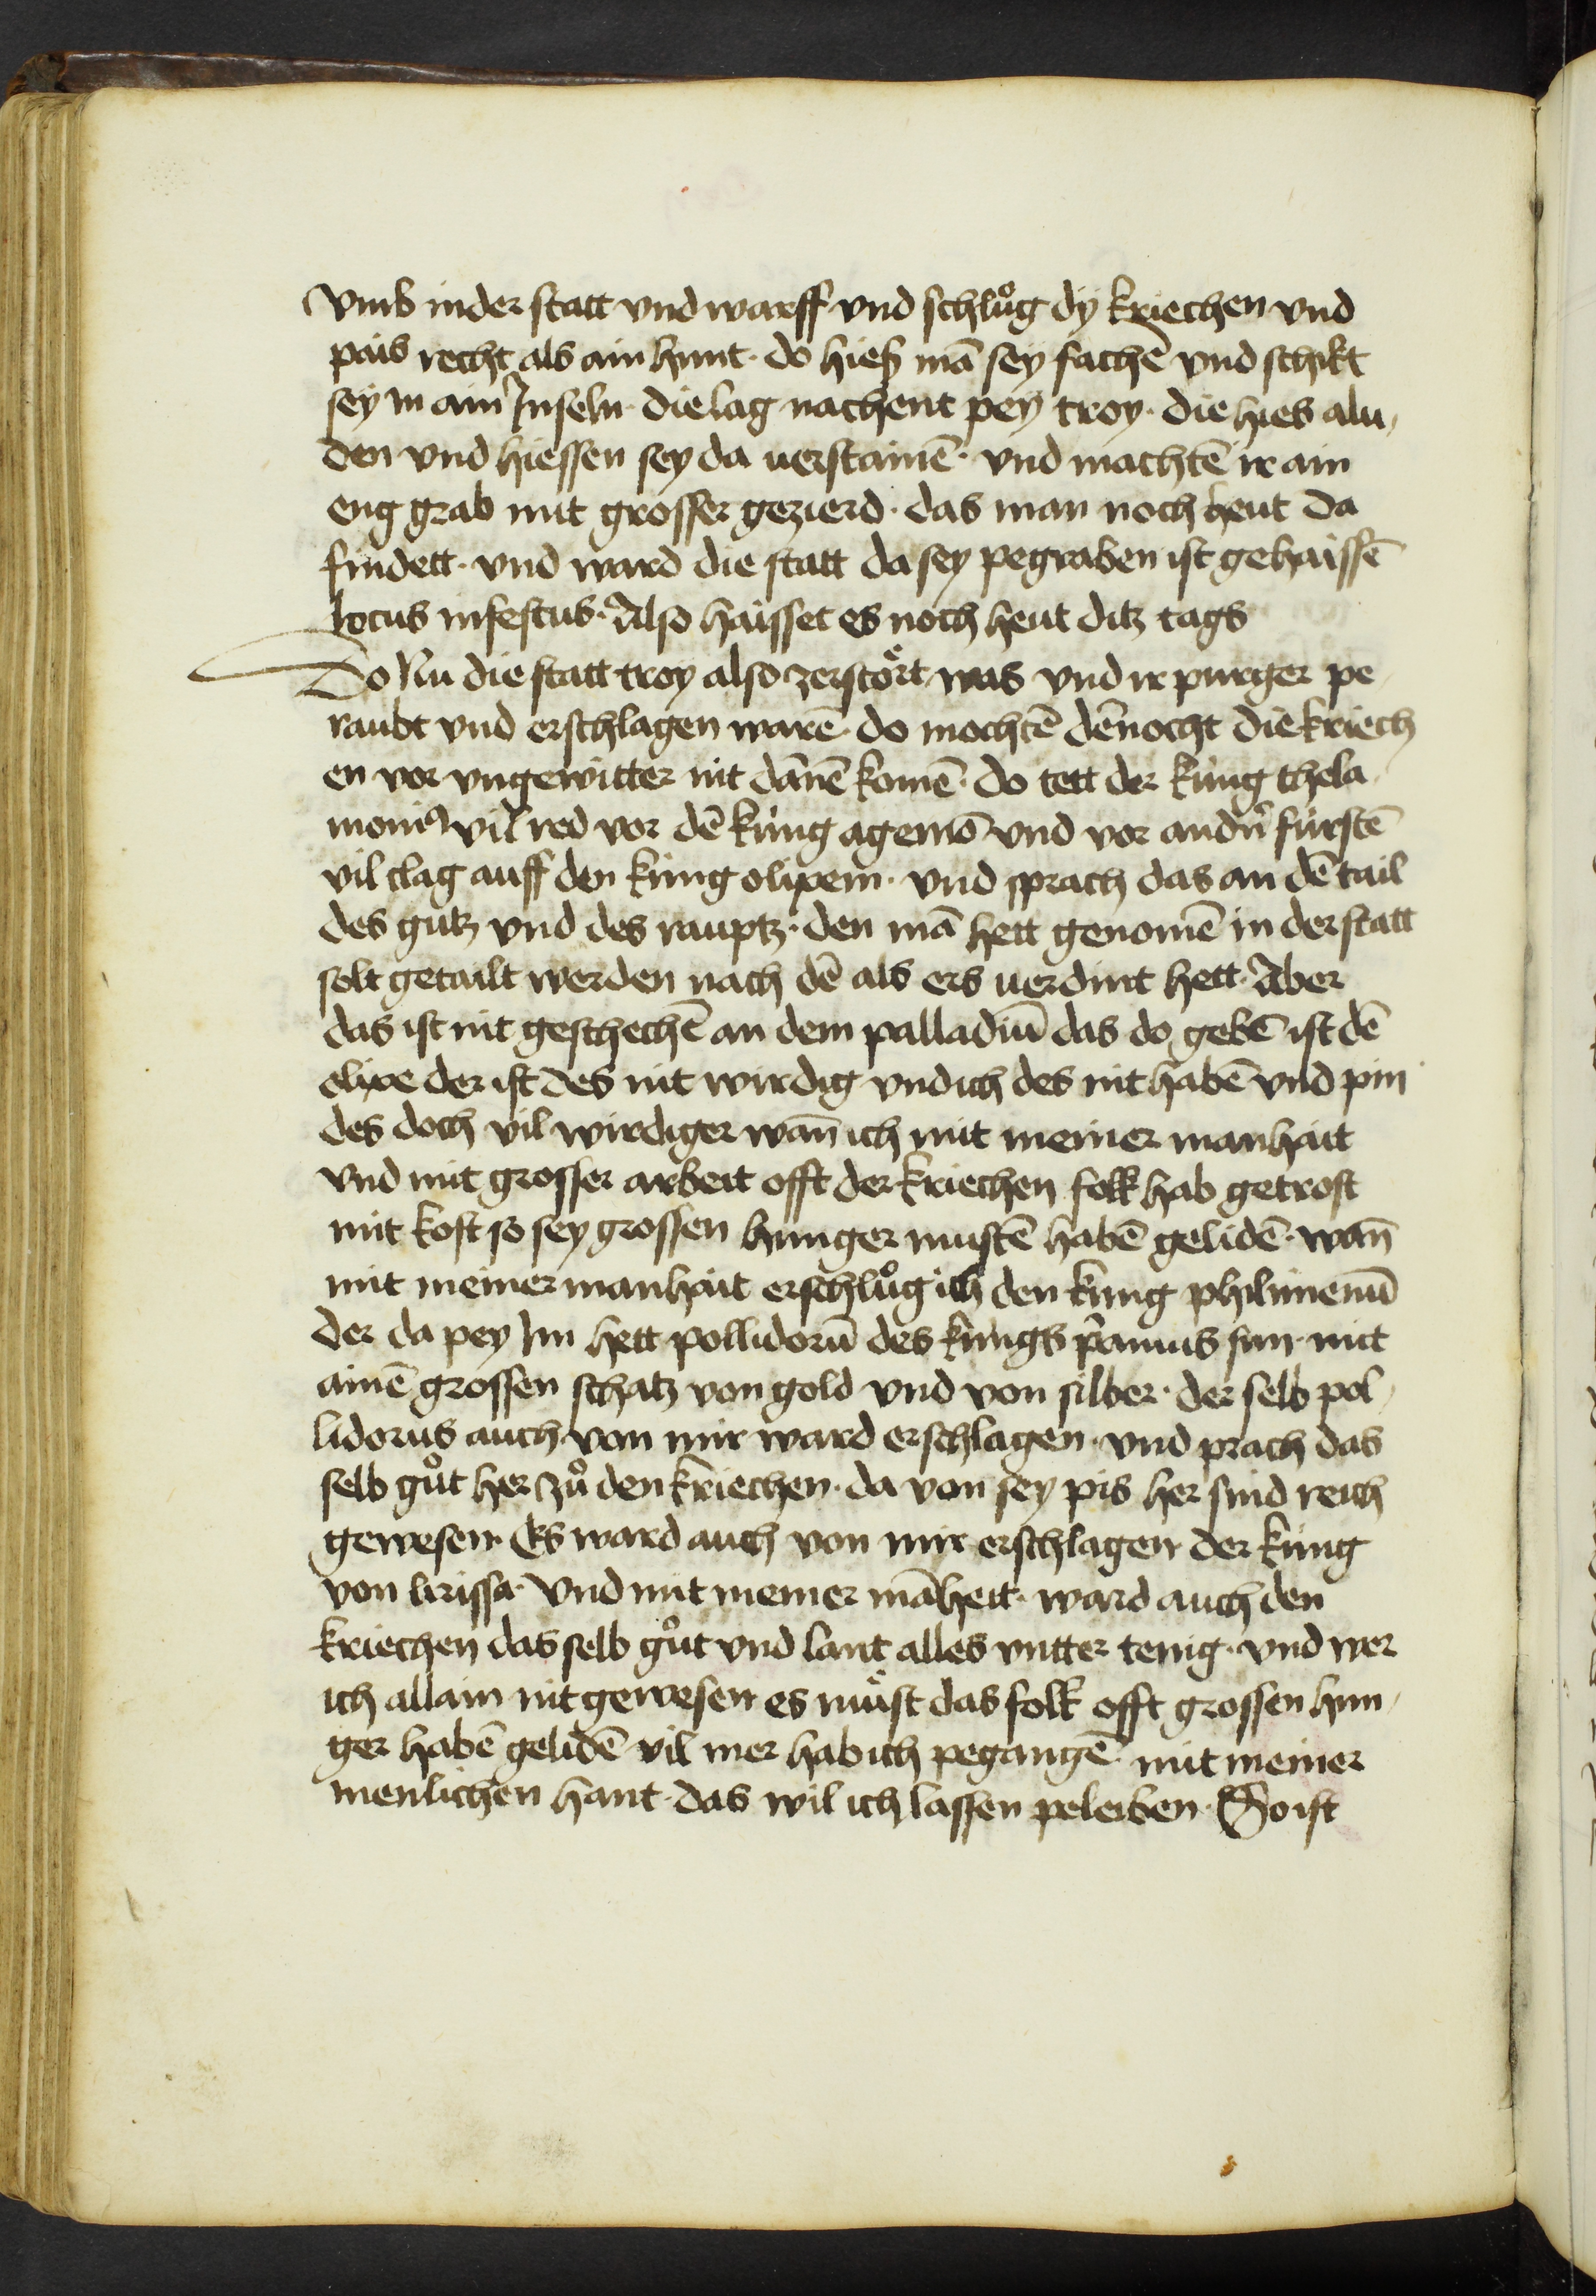 vmb in der statt vnd warff vnd schlůg dÿ kriechen vnd
pais recht als ain hunt · do hieß mā sey fachē vnd schikt
sey in ain Inseln · die lag nachent peÿ troy · die hies alu,
den vnd hiessen sey da uerstainē · vnd machtē ir ain
eng grab mit grosser gezierd · das man noch heut da
findett · vnd ward die statt da sey pegraben ist gehaissē
locus infestus · Also haisset es noch heut ditz tags
Do Nu die statt troy also zerstört was vnd ir purger pe
raubt vnd erschlagen warē · do mochtē dēnocht die kriech
en vor vngewitter nit dānē komē · do tett der küng thela
moniꝰ vil red vor dē küng agemō vnd vor andn̄ fürstē
vil clag auff den küng olixem · vnd sprach das an dē tail
des gutz vnd des rauptz · den mā hett genomē in der statt
solt getailt werden nach dē als ers uerdint hett · Aber
das ist nit geschechē an dem palladiū das do gebē ist dē
elixe der ist des nit wirdig vnd ich des nit habē vnd pin
des doch vil wirdiger wan̄ ich mit meiner manhait
vnd mit grosser arbeit offt der kriechen folk hab getrost
mit kost so sey grossen hunger mustē habē gelidē · wan̄
mit meiner manhait erschlůg ich den küng philimenū
der da pey Im hett pollidorū des küngs p̄amus sun · mit
ainē grossen schatz von gold vnd von silber · der selb pol,
lidorus auch von mir ward erschlagen · vnd prach das
selb gůt her zů den kriechen · da von sey pis her sind reich
gewesen · Es ward auch von mir erschlagen der küng
von lirissa · Vnd mit meiner māheit · ward auch den
kriechen das selb gůt vnd lant alles vntter tenig · vnd wer
ich allain nit gewesen es müst das folk offt grossen hun,
ger habē gelidē vil mer hab ich pegangē · mit meiner
menlichen hant · das wil ich lassen peleiben · So ist